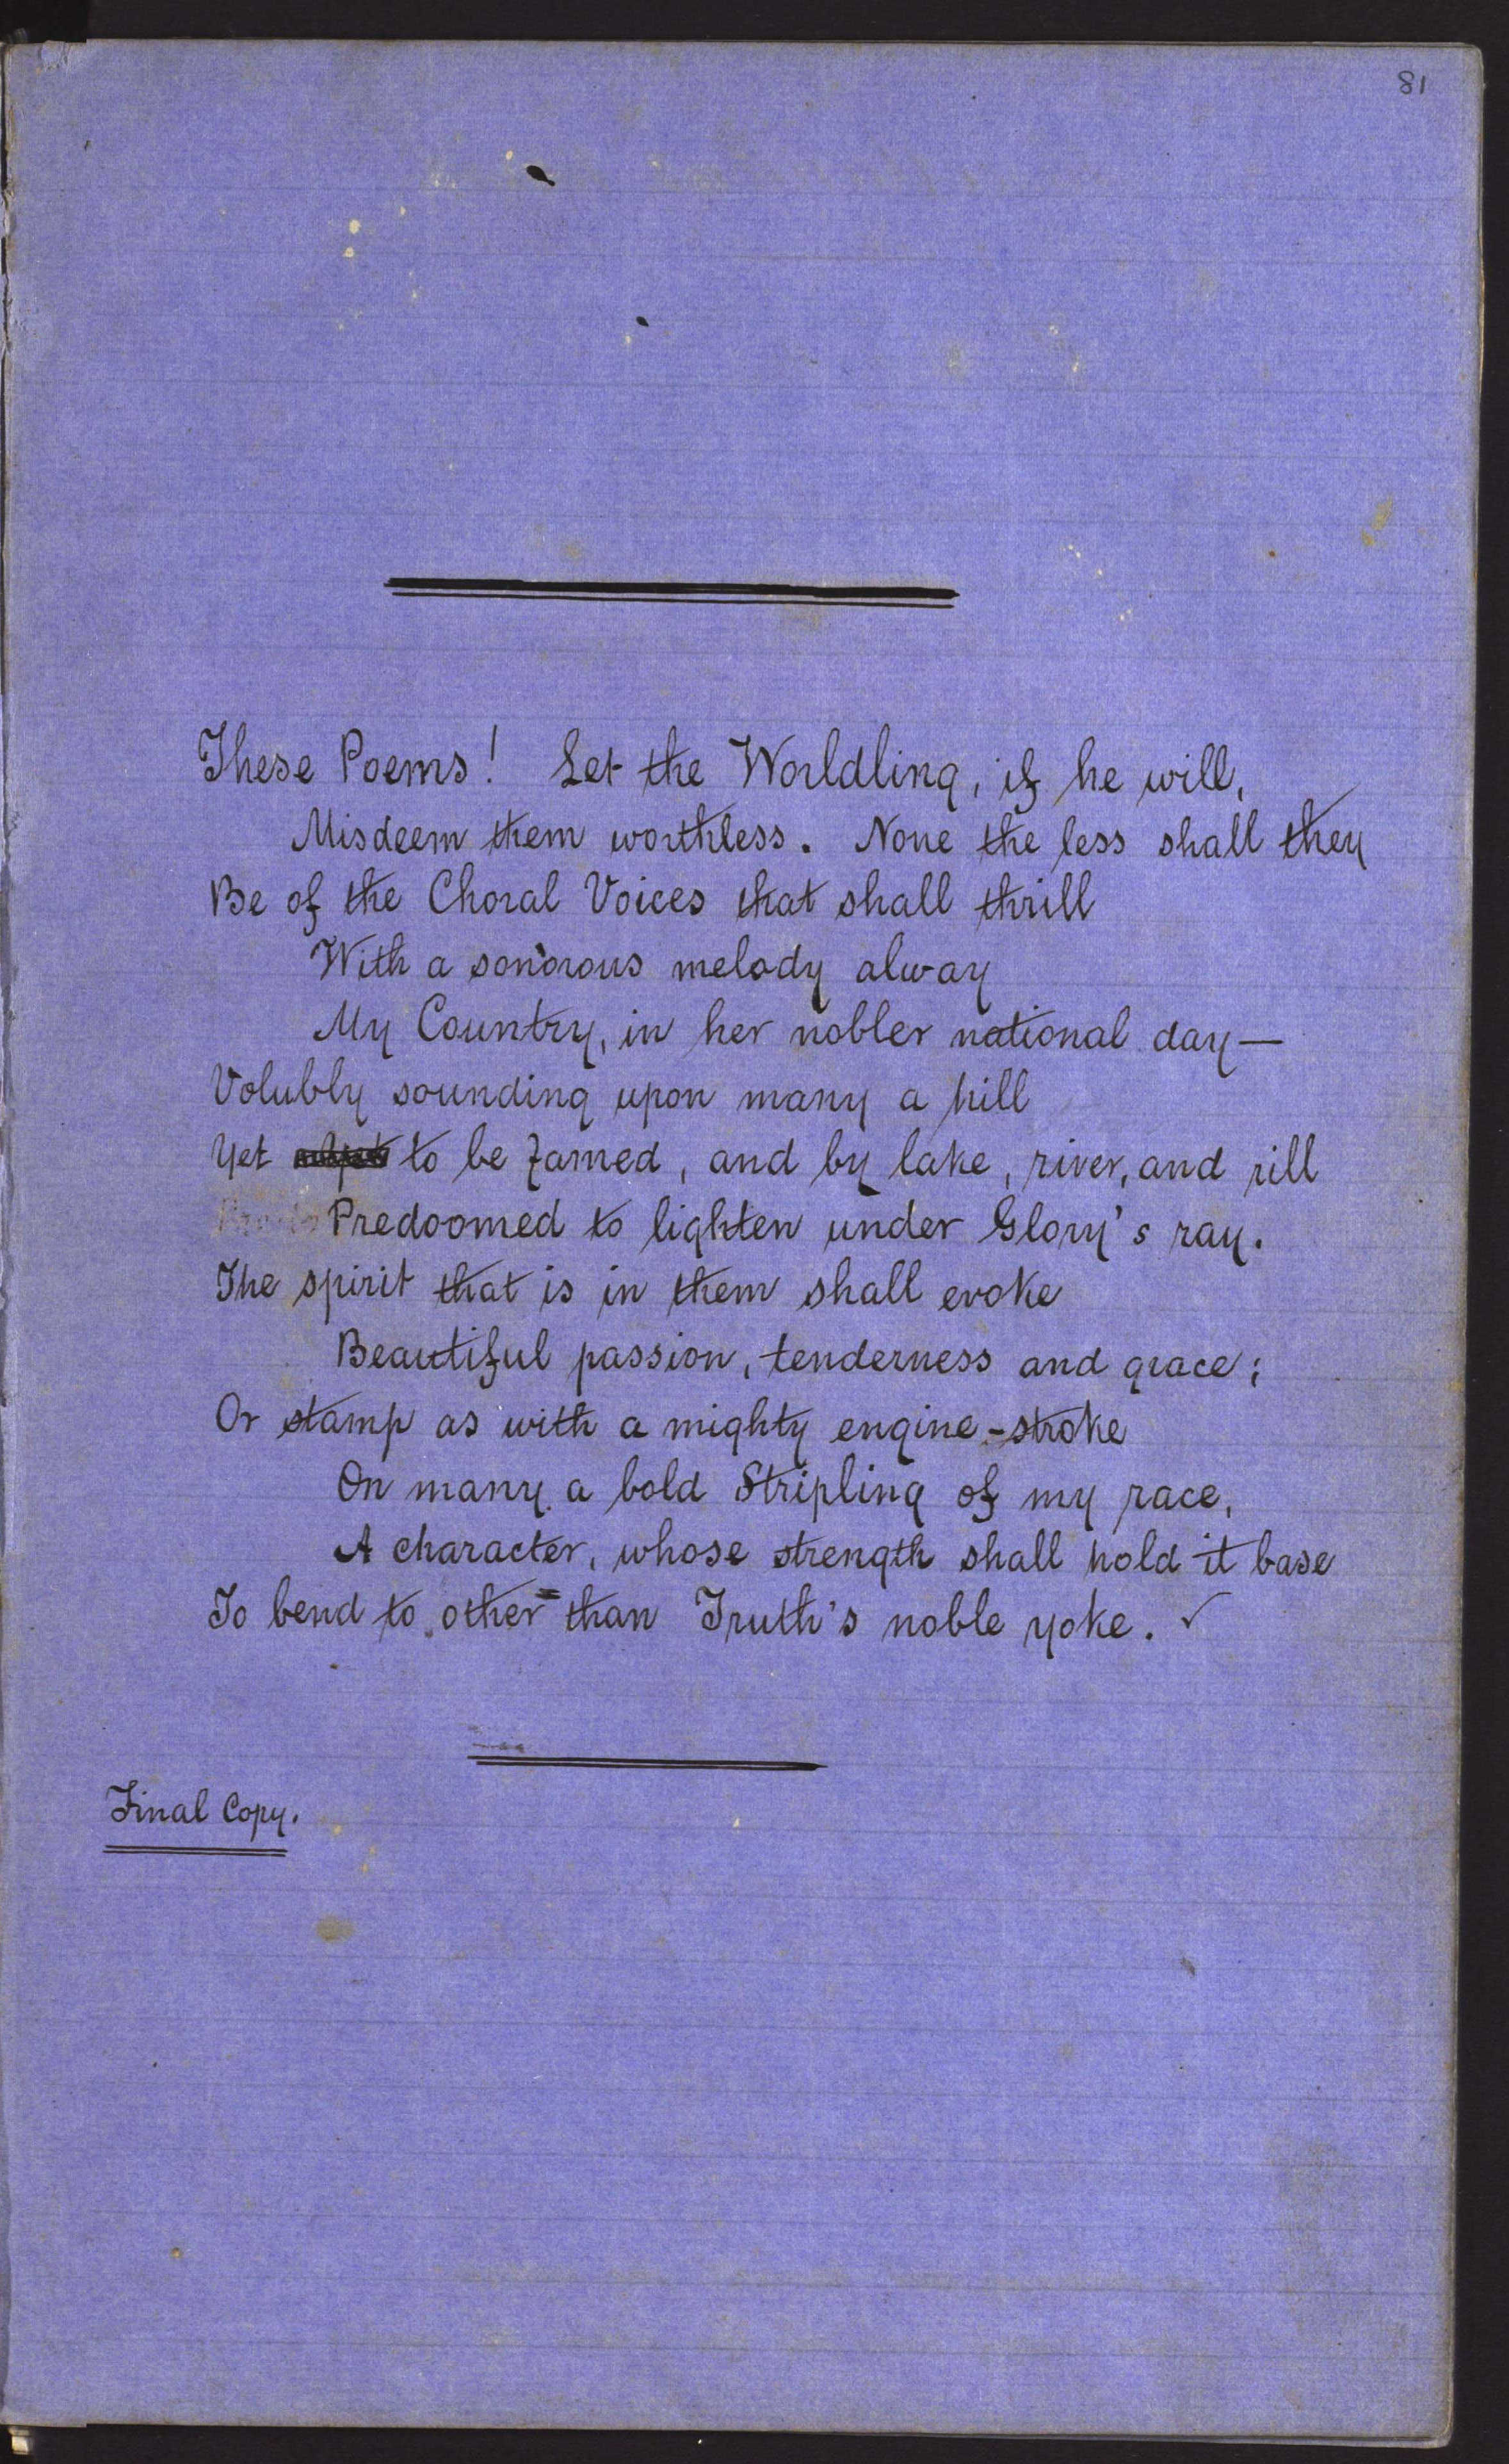 81
These Poems! Let the Worldling, if he will,
Misdeem them worthless. None the less shall they
Be of the Choral Voices that shall thrill
With a sonorous melody alway
My Country, in her nobler national day—
Volubly sounding upon many a hill
Yet to be famed, and by lake, river, and rill
Predoomed to lighten under Glory's ray.
The spirit that is in them shall evoke
Beautiful passion, tenderness and grace;
Or stamp as with a mighty engine-stroke
On many a bold Stripling of my race,
A character, whose strength shall hold it base
To bend to other than Truth's noble yoke. ✓
Final Copy.